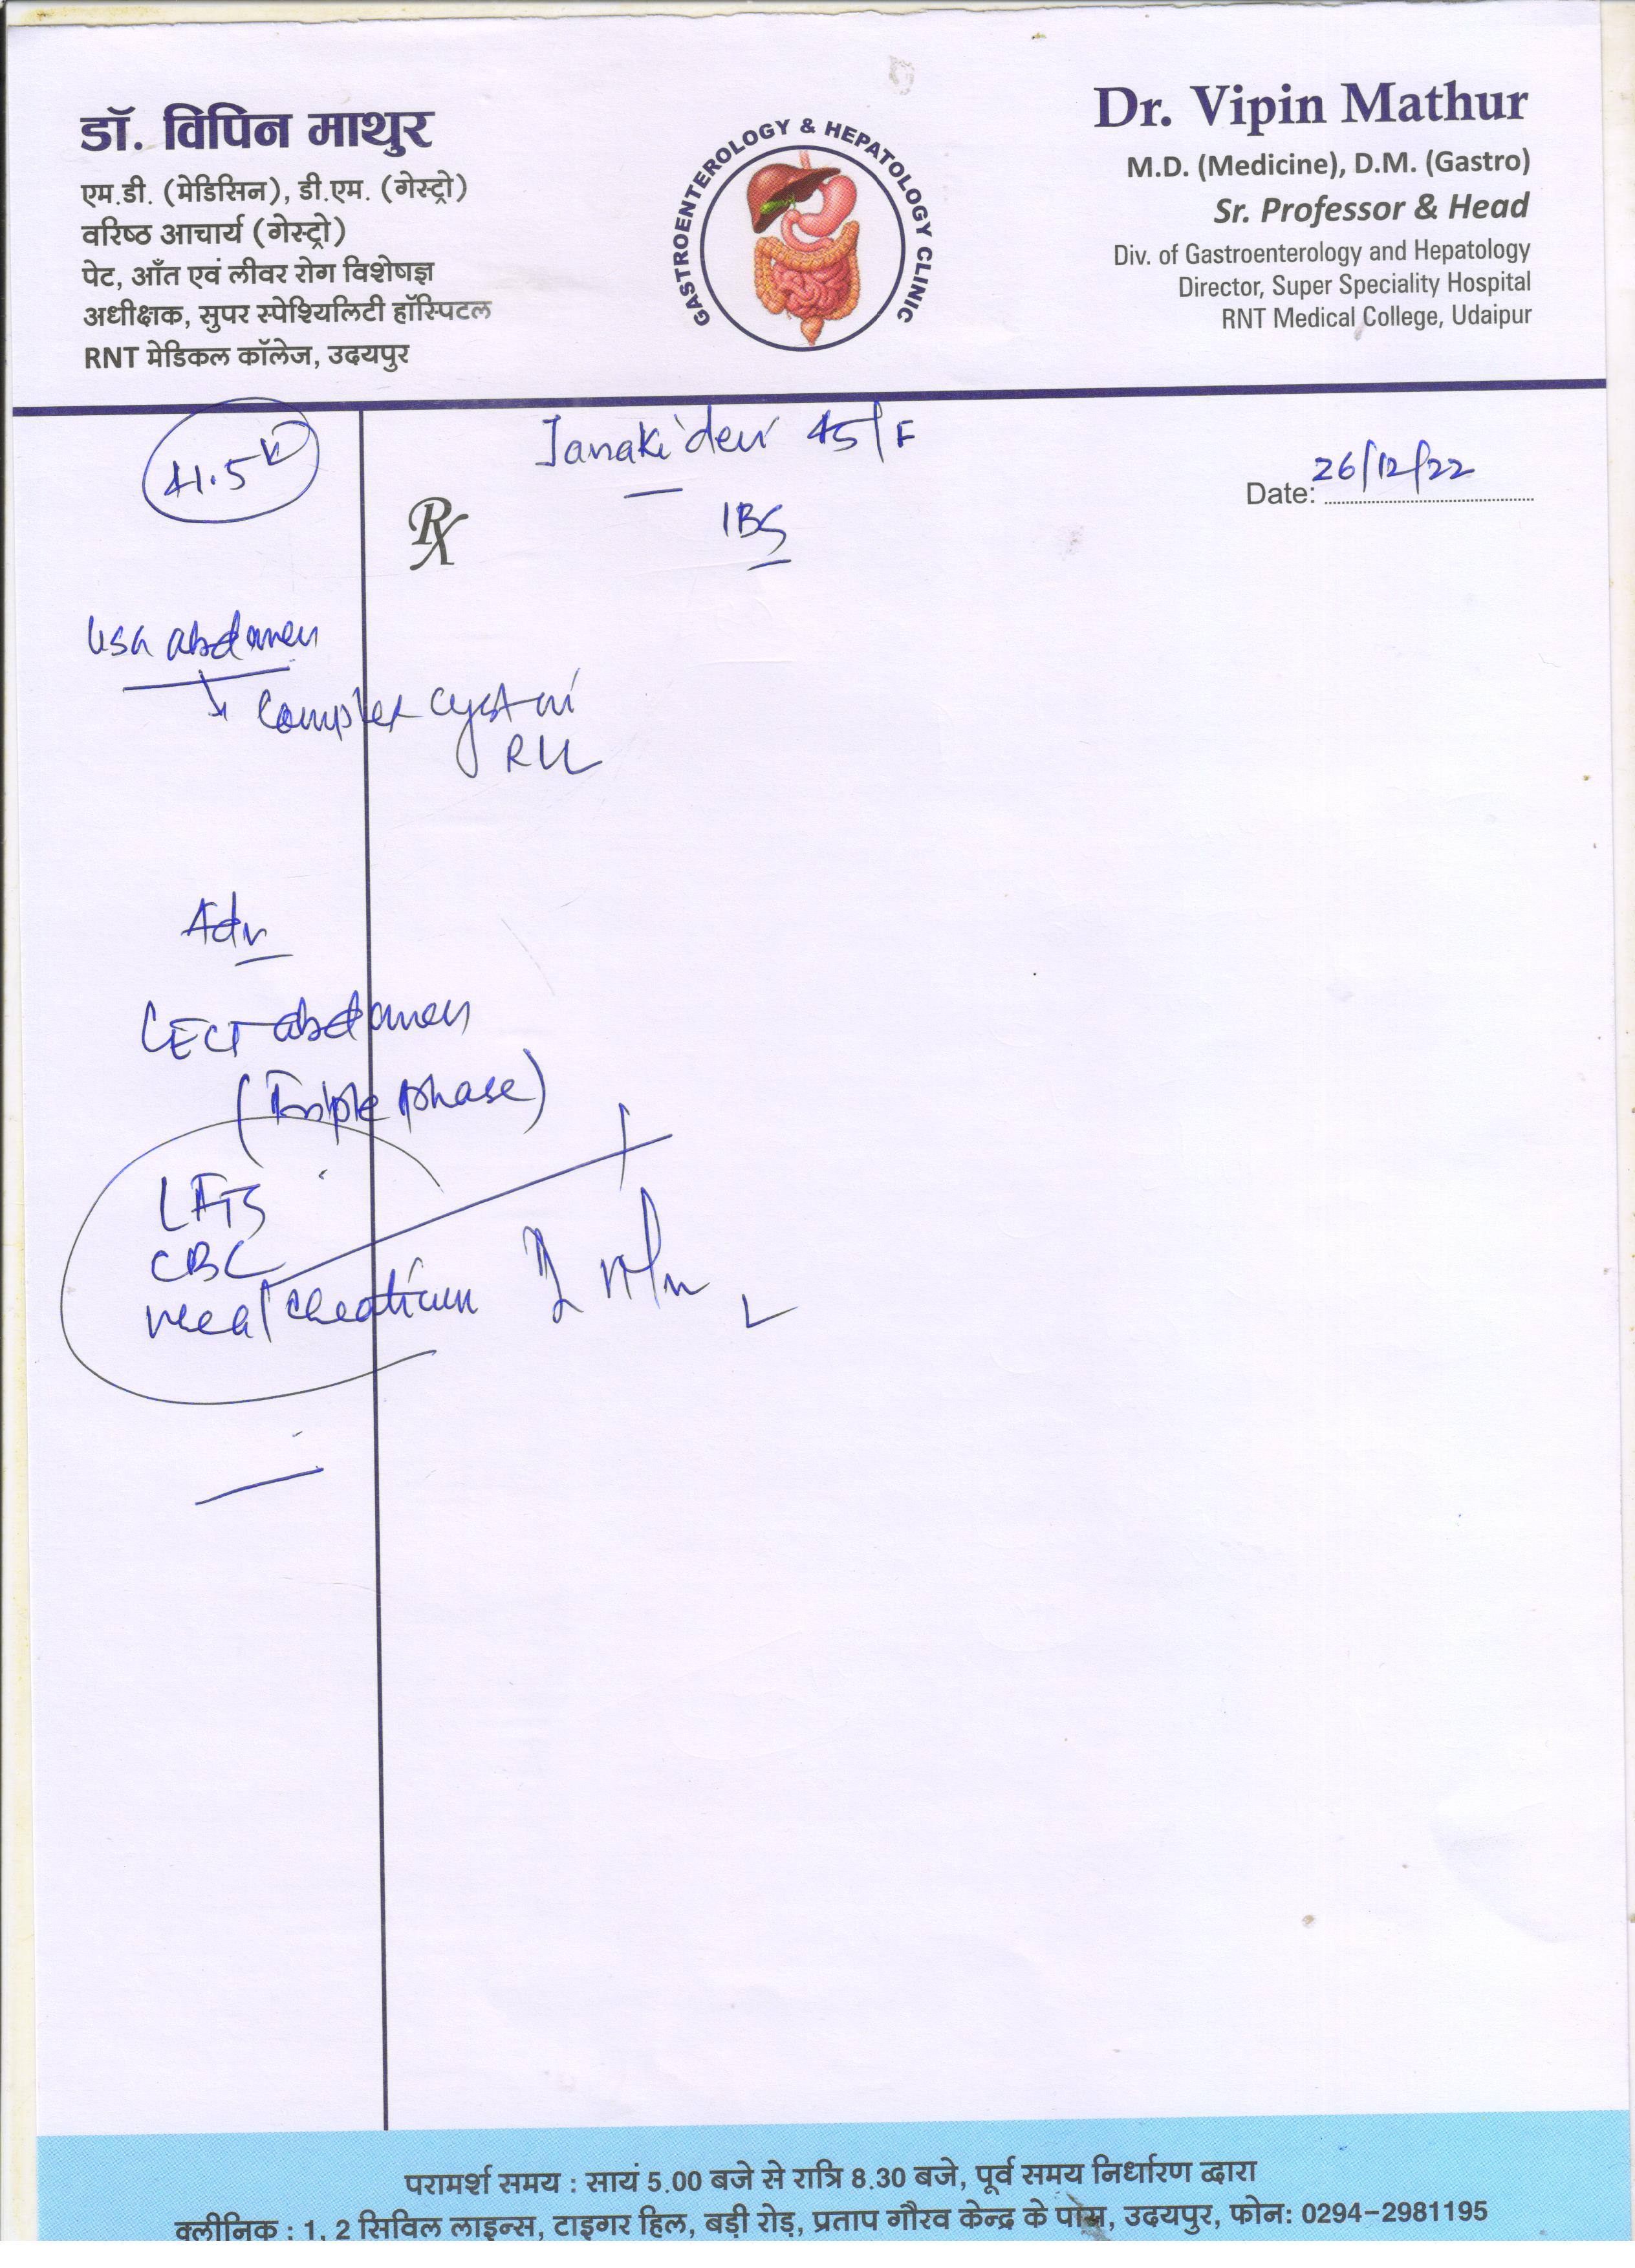 डॉ. विपिन माथुर
एम.डी. (मेडिसिन), डी.एम. (गेस्ट्रो)
वरिष्ठ आचार्य (गेस्ट्रो)
पेट, आँत एवं लीवर रोग विशेषज्ञ
अधीक्षक, सुपर स्पेश्यिलिटी हॉस्पिटल
RNT मेडिकल कॉलेज, उदयपुर
GASTROENTEROLOGY & HEPATOLOGY CLINIC
Dr. Vipin Mathur
M.D. (Medicine), D.M. (Gastro)
Sr. Professor & Head
Div. of Gastroenterology and Hepatology
Director, Super Speciality Hospital
RNT Medical College, Udaipur
41.5
Janaki devi 45/F
Date: 26/12/22
Rx
IBS
USG abdomen
Complex cyst in
Adv
CECT abdomen
(Triple phase)
LFTS
CBC
परामर्श समय : सायं 5.00 बजे से रात्रि 8.30 बजे, पूर्व समय निर्धारण द्वारा
क्लीनिक : 1, 2 सिविल लाइन्स, टाइगर हिल, बड़ी रोड़, प्रताप गौरव केन्द्र के पास, उदयपुर, फोन: 0294-2981195